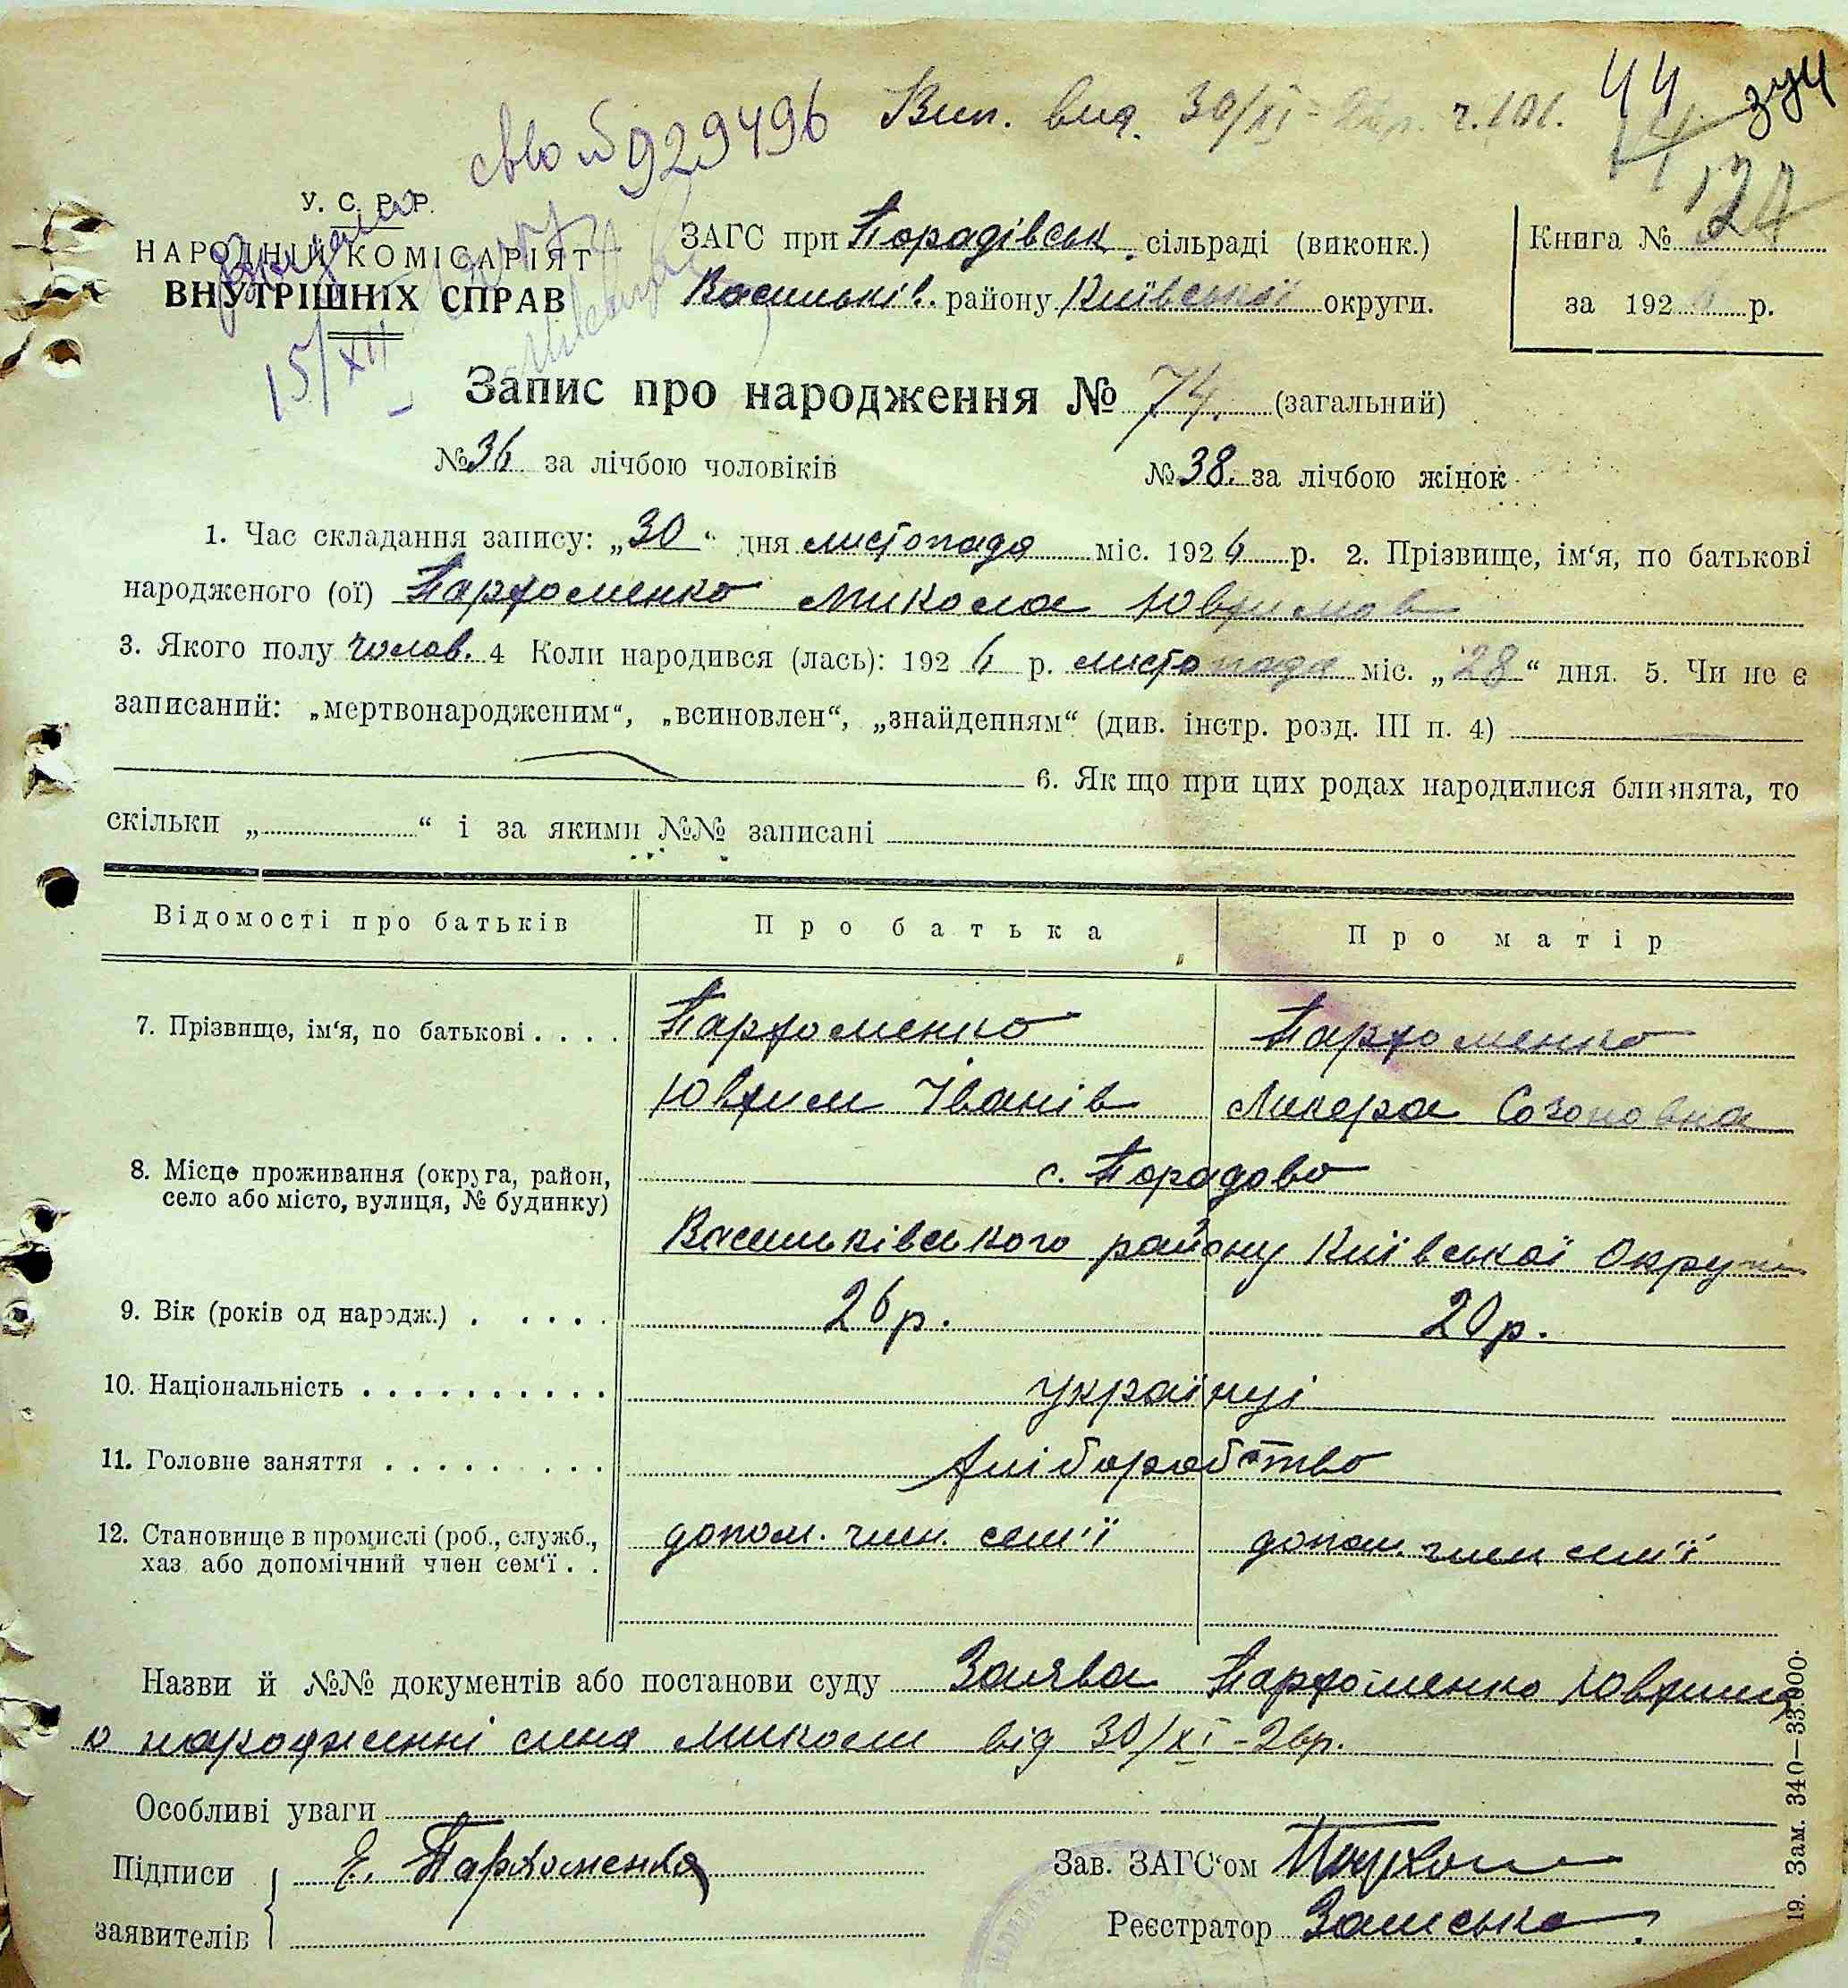 44
929496 Вип. вид. 30/XI-26р. ч.101.
124
У. С. Р. Р.
НАРОДНІЙ КОМІСАРІЯТ
ВНУТРІШНІХ СПРАВ
15/XII
ЗАГС при Порадівськ. сільраді (виконк.)
Васильків. району Київської округи.
Книга №
за 1926 р.
Запис про народження № 74. (загальний)
№ 36 за лічбою чоловіків № 38. за лічбою жінок
1. Час складання запису: „30“ дня листопада міс. 1926 р. 2. Прізвище, ім‘я, по батькові
народженого (ої) Пархоменко Микола Ювхимов
3. Якого полу чолов. 4 Коли народився (лась): 1926 р. листопада міс. „28“ дня. 5. Чи не є
записаний: „мертвонародженим“, „всиновлен“, „знайденням“ (див. інстр. розд. III п. 4)
6. Як що при цих родах народилися близнята, то
скільки „ “ і за якими №№ записані
Відомості про батьків Про батька Про матір
7. Прізвище, ім‘я, по батькові . . . . Пархоменко Пархоменко
Ювхим Іванів Ликера Созоновна
8. Місце проживання (округа, район,
село або місто, вулиця, № будинку)
с. Порадово
Васильківського району Київської Округи
9. Вік (років од народж.) . . . . . 26р. 20р.
10. Національність . . . . . . . . . . українці
11. Головне заняття . . . . . . . . . хліборобство
12. Становище в промислі (роб., служб.,
хаз або допомічний член сем‘ї . .
допом. член. сем'ї допом. член сем'ї
Назви й №№ документів або постанови суду Заява Пархоменко Ювхима
о народженні сина Миколи від 30/XI-26р.
Особливі уваги
Підписи
заявителів
Е. Пархоменко
Зав. ЗАГС‘ом
Реєстратор
19. Зам. 340—33.000.